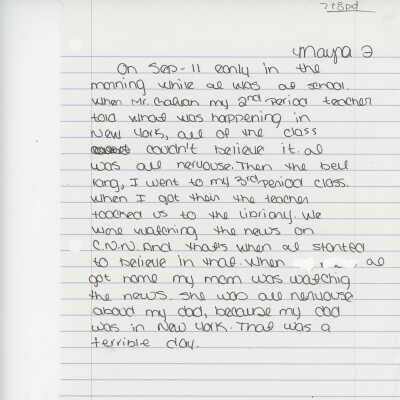 7+8pd
Mayra 2
On Sep-11 early in the
morning while al was al school.
When Mr. Galvan my 2nd Period teacher
told what was happening in
New York, all of the class
couldn't believe it. al
was all nervouse. Then the bell
rang, I went to my 3rd Period class.
When I got then the teacher
toached us to the libriany. We
were watching the news on
C.N.N. And that's when al started
to believe in that. When al
got home my mom was watchig
the news. She was all nervouse
about my dad, because my dad
was in New York. That was a
terrible day.